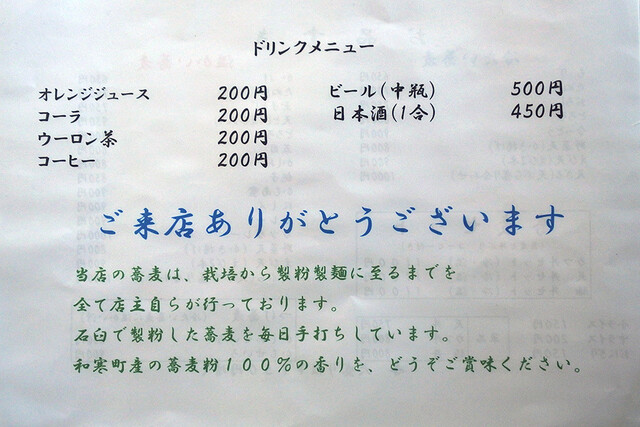 ドリンクメニュー
オレンジジュース 200円 ビール(中瓶) 500円
コーラ 200円 日本酒(1合) 450円
ウーロン茶 200円
コーヒー 200円
ご来店ありがとうございます
当店の蕎麦は、栽培から製粉製麺に至るまでを
全て店主自らが行っております。
石臼で製粉した蕎麦を毎日手打ちしています。
和寒町産の蕎麦粉100%の香りを、どうぞご賞味ください。